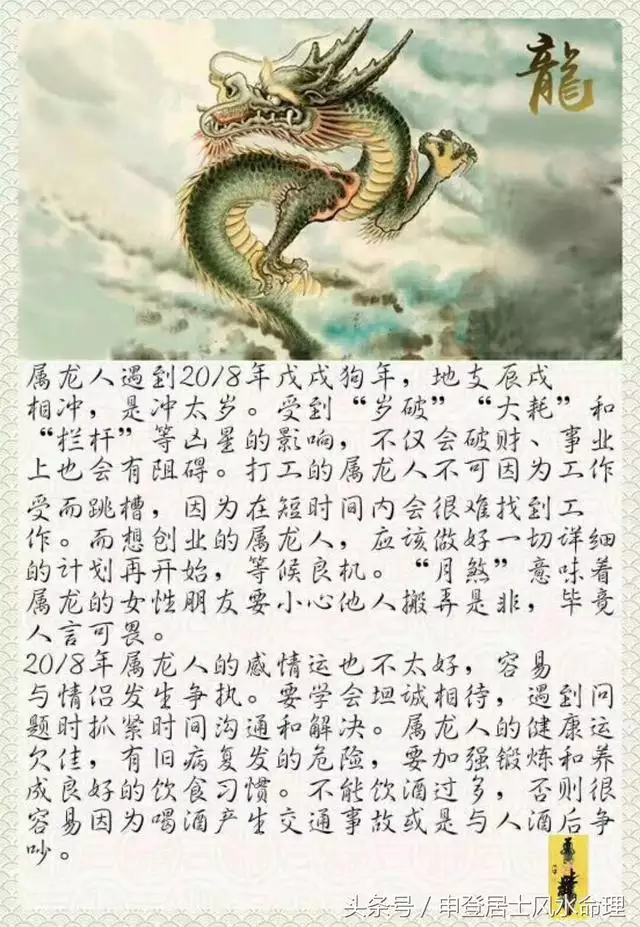 龍
属龙人遇到2018年戊戌狗年，地支辰戌
相冲，是冲太岁。受到“岁破”“大耗”和
“拦杆”等凶星的影响，不仅会破财、事业
上也会有阻碍。打工的属龙人不可因为工作
受而跳槽，因为在短时间内会很难找到工
作。而想创业的属龙人，应该做好一切详细
的计划再开始，等候良机。“月煞”意味着
属龙的女性朋友要小心他人搬弄是非，毕竟
人言可畏。
2018年属龙人的感情运也不太好，容易
与情侣发生争执。要学会坦诚相待，遇到问
题时抓紧时间沟通和解决。属龙人的健康运
欠佳，有旧病复发的危险，要加强锻炼和养
成良好的饮食习惯。不能饮酒过多，否则很
容易因为喝酒产生交通事故或是与人酒后争
吵。
头条号/申登居士风水命理